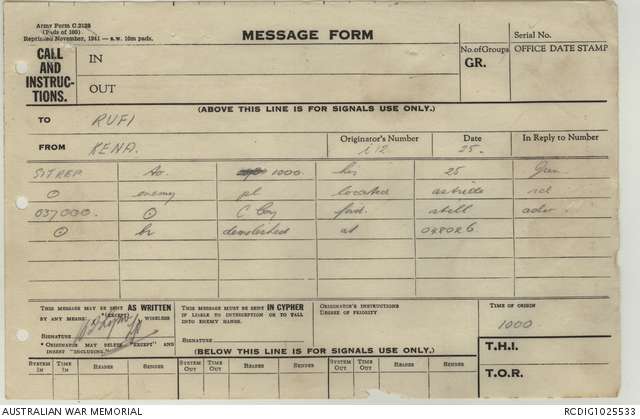 Army Form C.2128
(Pads of 100)
Reprinted November, 1941 — s.w. 10m pads.
MESSAGE FORM
Serial No.
CALL AND INSTRUCTIONS.
IN
No. of Groups
GR.
OFFICE DATE STAMP
OUT
(ABOVE THIS LINE IS FOR SIGNALS USE ONLY.)
TO RUFI
FROM KENA.
Originator's Number
i 12
Date
25.
In Reply to Number
SITREP to 1000 hrs 25
⊙ enemy pl located astride rd
037000. ⊙ C Coy fwd. still adv.
⊙ br demolished at 048026
THIS MESSAGE MAY BE SENT AS WRITTEN BY ANY MEANS (EXCEPT) WIRELESS
SIGNATURE
* ORIGINATOR MAY DELETE "EXCEPT" AND INSERT "INCLUDING."
THIS MESSAGE MUST BE SENT IN CYPHER IF LIABLE TO INTERCEPTION OR TO FALL INTO ENEMY HANDS.
SIGNATURE
ORIGINATOR'S INSTRUCTIONS
DEGREE OF PRIORITY
TIME OF ORIGIN
1000
(BELOW THIS LINE IS FOR SIGNALS USE ONLY.)
T.H.I.
SYSTEM IN TIME IN READER SENDER SYSTEM OUT TIME OUT READER SENDER SYSTEM OUT TIME OUT READER SENDER
T.O.R.
AUSTRALIAN WAR MEMORIAL
RCDIG1025533